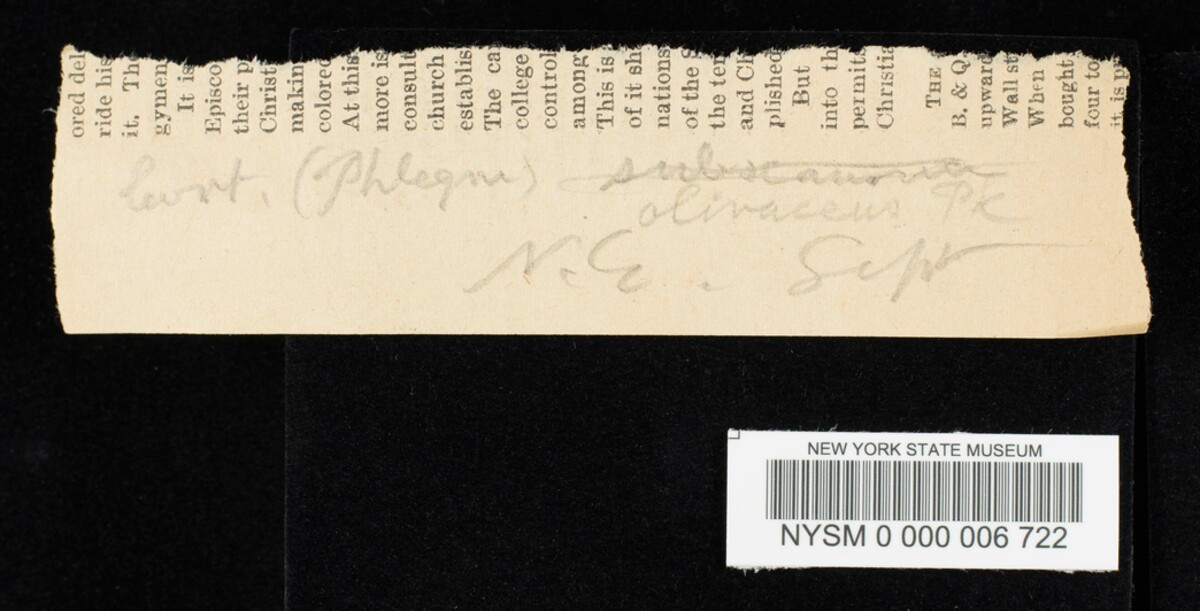 ored del
ride his
it. The
gymen
It is
Episco
their p
Christ
makin
colored
At this
more is
consult
church
establis
The ca
college
control
among
This is
of it sh
nations
of the g
the ter
and Ch
plished
But
into th
permits
Christia
THE
B. & Q.
upward
Wall st
When
bought
four to
it is pr
Cort. (Phlegm)
olivaceus Pk
N. E. Sept
NEW YORK STATE MUSEUM
NYSM 0 000 006 722